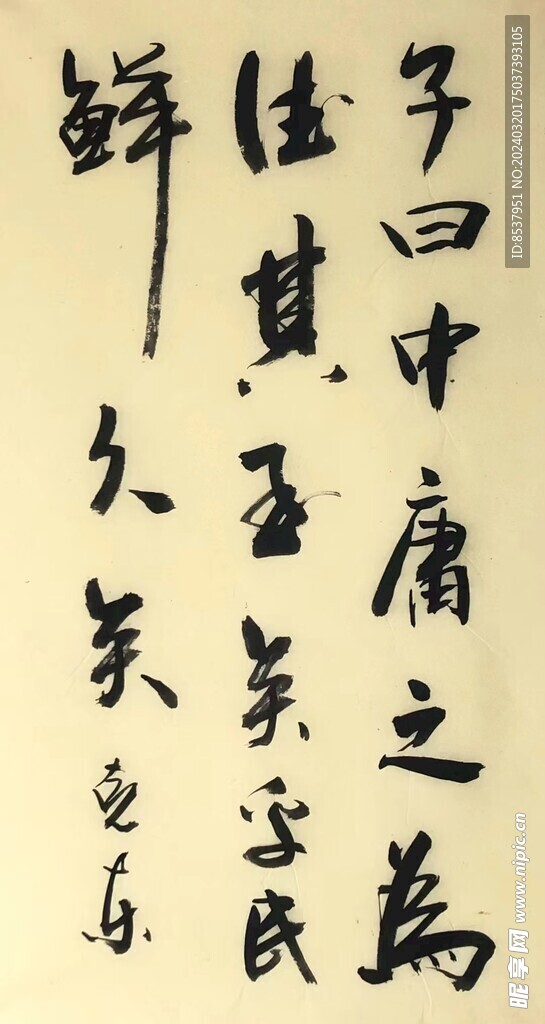 子曰中庸之為
德其至矣乎民
鮮久矣
克东
ID:8537951 NO:20240320175037393105
昵享网 www.nipic.cn